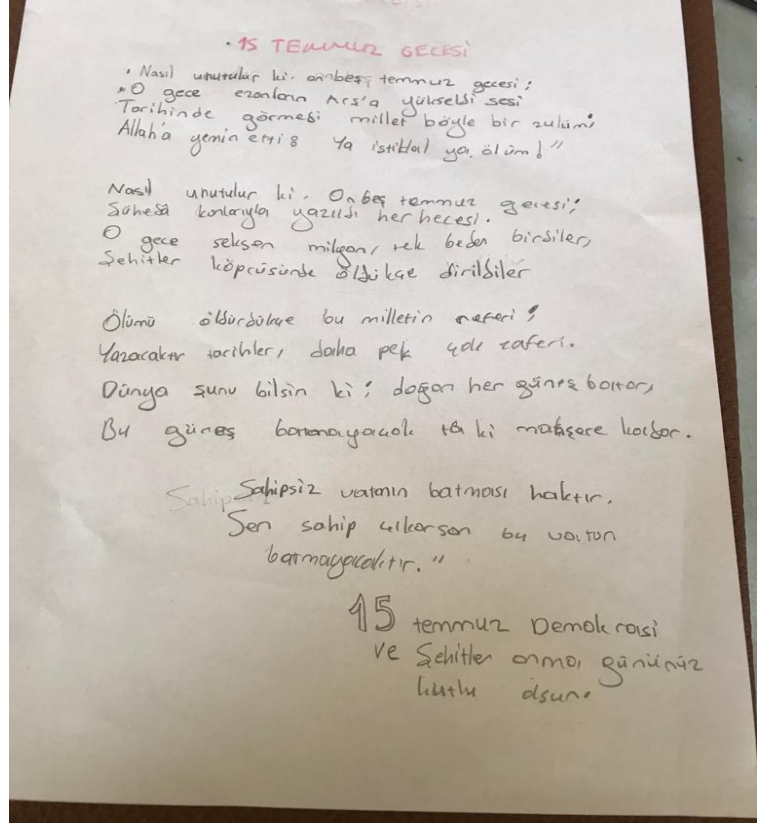 • 15 TEMMUZ GECESİ
• Nasıl unutulur ki. onbeş temmuz gecesi;
• O gece ezanların Arş'a yükseldi sesi
Tarihinde görmedi millet böyle bir zulüm;
Allah'a yemin etti: Ya istiklal ya, ölüm!"
Nasıl unutulur ki. Onbeş temmuz gecesi;
Şühedâ kanlarıyla yazıldı her hecesi.
O gece seksen milyon, tek beden birdiler,
Şehitler köprüsünde öldükçe dirildiler
Ölümü öldürdükçe bu milletin neferi;
Yazacaktır tarihler, daha pek çok zaferi.
Dünya şunu bilsin ki; doğan her güneş batar,
Bu güneş batmayacak ta ki mahşere kadar.
Sahipsiz vatanın batması haktır.
Sen sahip çıkarsan bu vatan
batmayacaktır."
15 temmuz Demokrasi
ve Şehitler anma, gününüz
kutlu olsun.